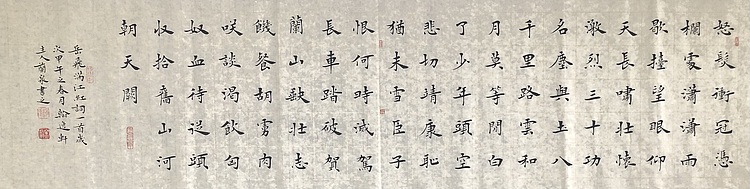 怒髮衝冠憑
欄處瀟瀟雨
歇擡望眼仰
天長嘯壯懷
激烈三十功
名塵與土八
千里路雲和
月莫等閒白
了少年頭空
悲切靖康恥
猶未雪臣子
恨何時滅駕
長車踏破賀
蘭山缺壯志
饑餐胡虜肉
咲談渴飲匈
奴血待從頭
收拾舊山河
朝天闕
岳飛滿江紅詞一首歲
次甲午之春月翰逸軒
主人書之